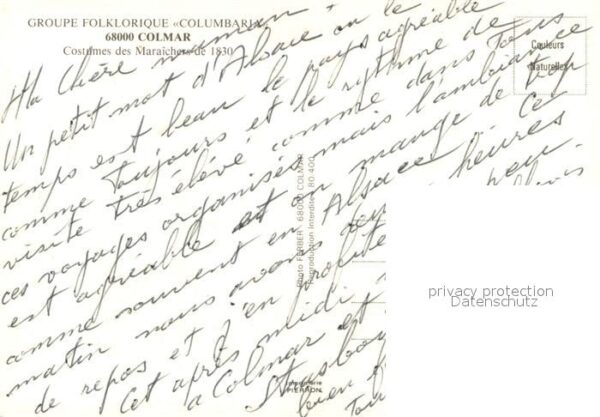 GROUPE FOLKLORIQUE «COLUMBARIA»
68000 COLMAR
Costumes des Maraîchers de 1830
Couleurs
Naturelles
Ma Chère maman
Un petit mot d'Alsace ou le
temps est beau le pays agréable
comme toujours et le rythme de
visite très élevé comme dans tous
ces voyages organisés mais l'ambiance
est agréable et on mange de trop
comme souvent en Alsace. Ce
matin nous avons deux heures
de repos et j'en profite
Cet après midi
à Colmar et
Strasbou
bien
Photo FERBER - 68000 COLMAR
Reproduction Interdite 80.400
Imprimerie
PIERRON
privacy protection
Datenschutz